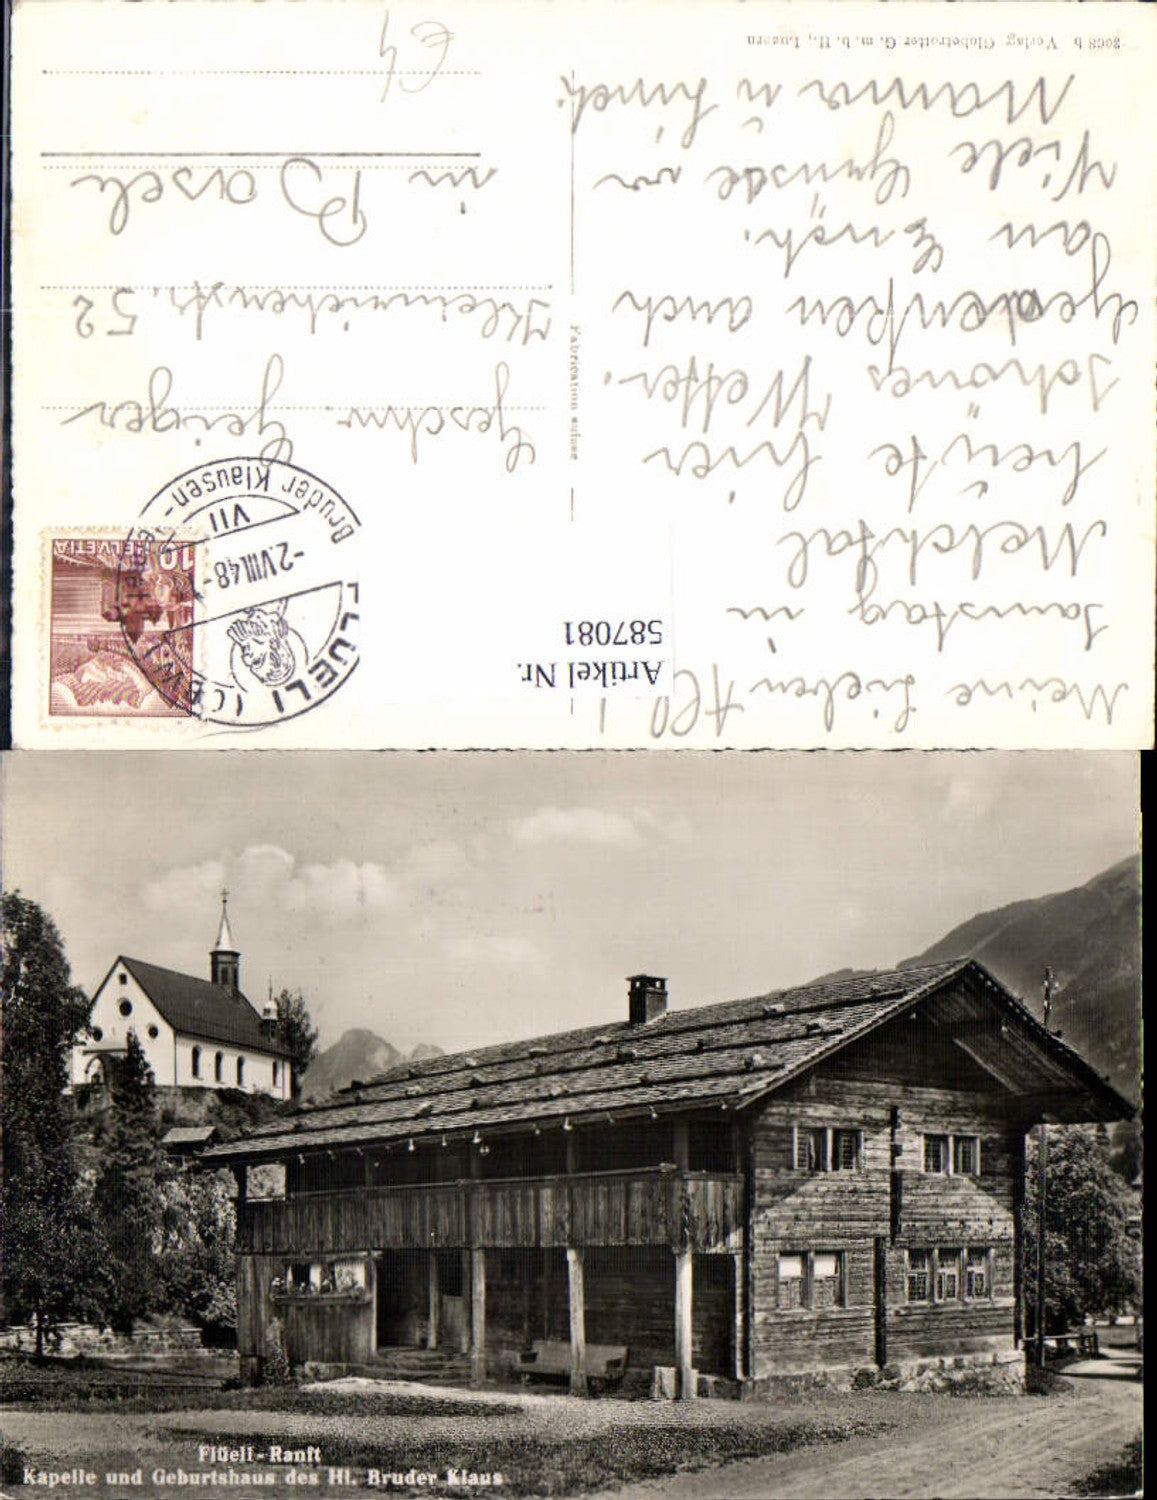 2068 b Verlag Globetrotter G. m. b. H., Luzern
€4
Meine Lieben All!
Samstag in
Melchtal
heute hier
schönes Wetter.
Gedenken auch
an Euch.
Viele Grüsse von
Mama u
Fabrication suisse
Geschw. Geiger
Kleinrichenstr. 52
in Basel
HELVETIA
10
FLÜELI (OBW.)
-2.VIII.48-
VII
Bruder Klausen-
Artikel Nr.
587081
Flüeli-Ranft
Kapelle und Geburtshaus des Hl. Bruder Klaus